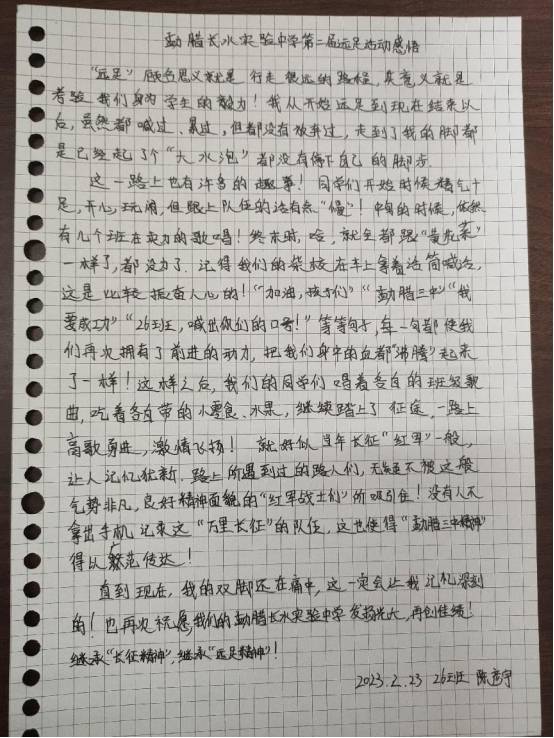 勐腊长水实验中学第二届远足活动感悟
"远足"顾名思义就是行走很远的路程，其意义就是
考验我们身为学生的毅力！我从开始远足到现在结束以
后，虽然都喊过、累过，但都没有放弃过，走到了我的脚都
是已经起了个"大水泡"都没有停下自己的脚步。
这一路上也有许多的趣事！同学们开始时候精气十
足，开心，玩闹，但跟上队伍的话有点"慢"！中旬的时候，依然
有几个班在卖力的歌唱！然末时，哈，就全都跟"黄花菜"
一样了，都没力了。记得我们的柴校在车上拿着话筒喊话，
这是比较振奋人心的！"加油，孩子们""勐腊三中""我
要成功""26班，喊出你们的口号！"等等句子，每一句都使我
们再次拥有了前进的动力，把我们身中的血都"沸腾"起来
了一样！这样之后，我们的同学们唱着各自的班级歌
曲，吃着各自带的小零食、水果，继续踏上了征途，一路上
高歌勇进，激情飞扬！就好似当年长征"红军"一般，
让人记忆犹新。路上所遇到过的路人们，无疑不被这般
气势非凡，良好精神面貌的"红军战士们"所吸引住！没有人不
拿出手机记录这"万里长征"的队伍，这也使得"勐腊三中精神"
得以繁范传达！
直到现在，我的双脚还在痛中，这一定会让我记忆深刻
的！也再次祝愿，我们的勐腊长水实验中学发扬光大，再创佳绩！
继承"长征精神"，继承"远足精神"！
2023.2.23 26班 陈彦宇